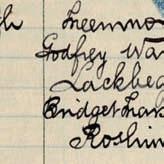 Freemno
Godfrey Wa
Lackbeg
Bridget
Roshin